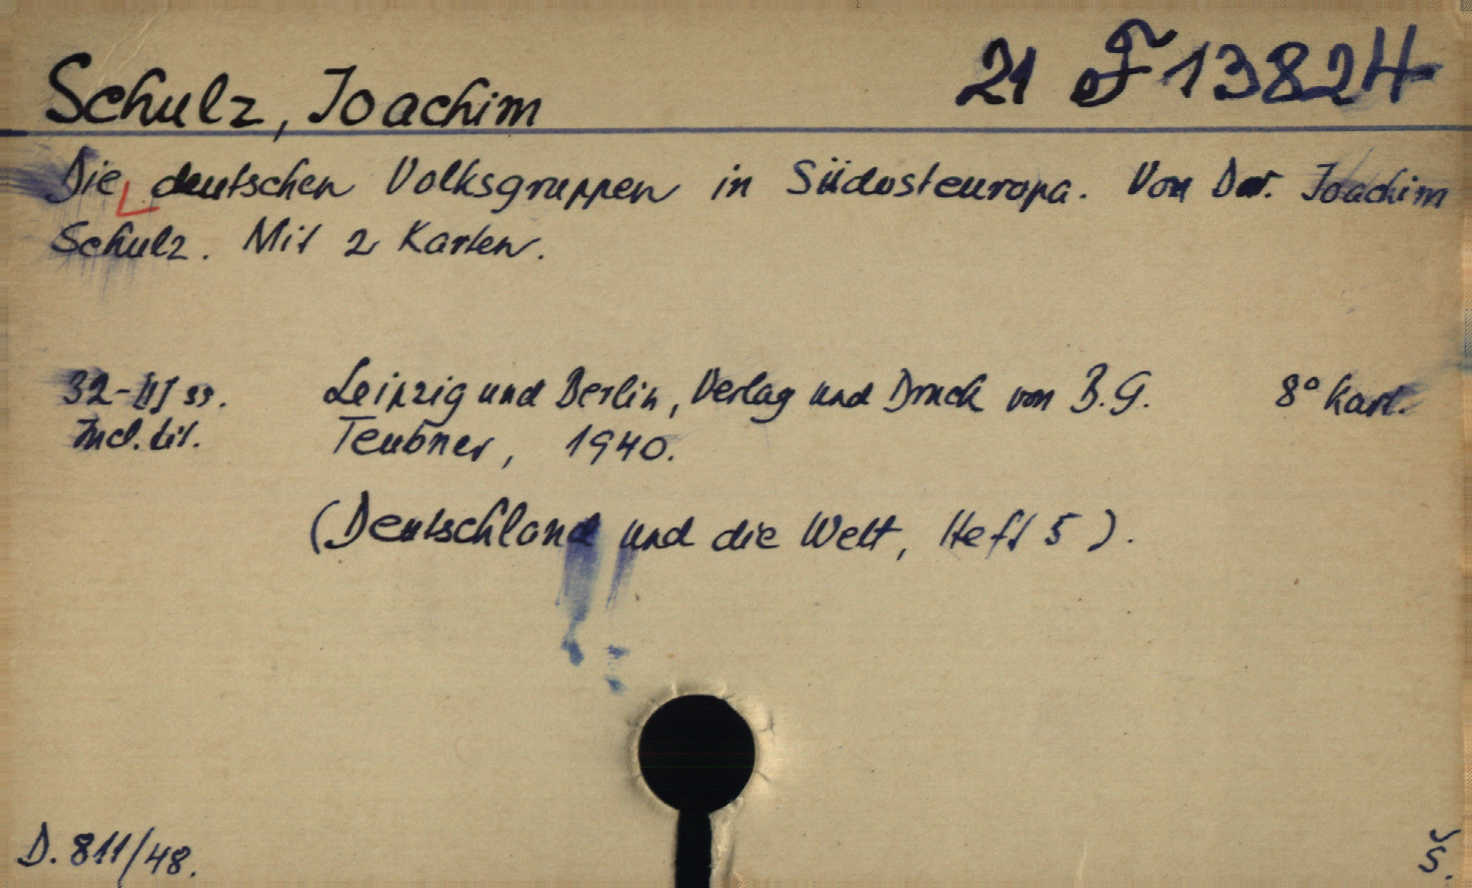 Schulz, Joachim
21 F 13824
Die deutschen Volksgruppen in Südosteuropa. Von Dr. Joachim
Schulz. Mit 2 Karten.
32-III ss. Leipzig und Berlin, Verlag und Druck von B.G. 8° kart.
Incl. tit. Teubner, 1940.
(Deutschland und die Welt, Heft 5).
D. 811/48.
Š.